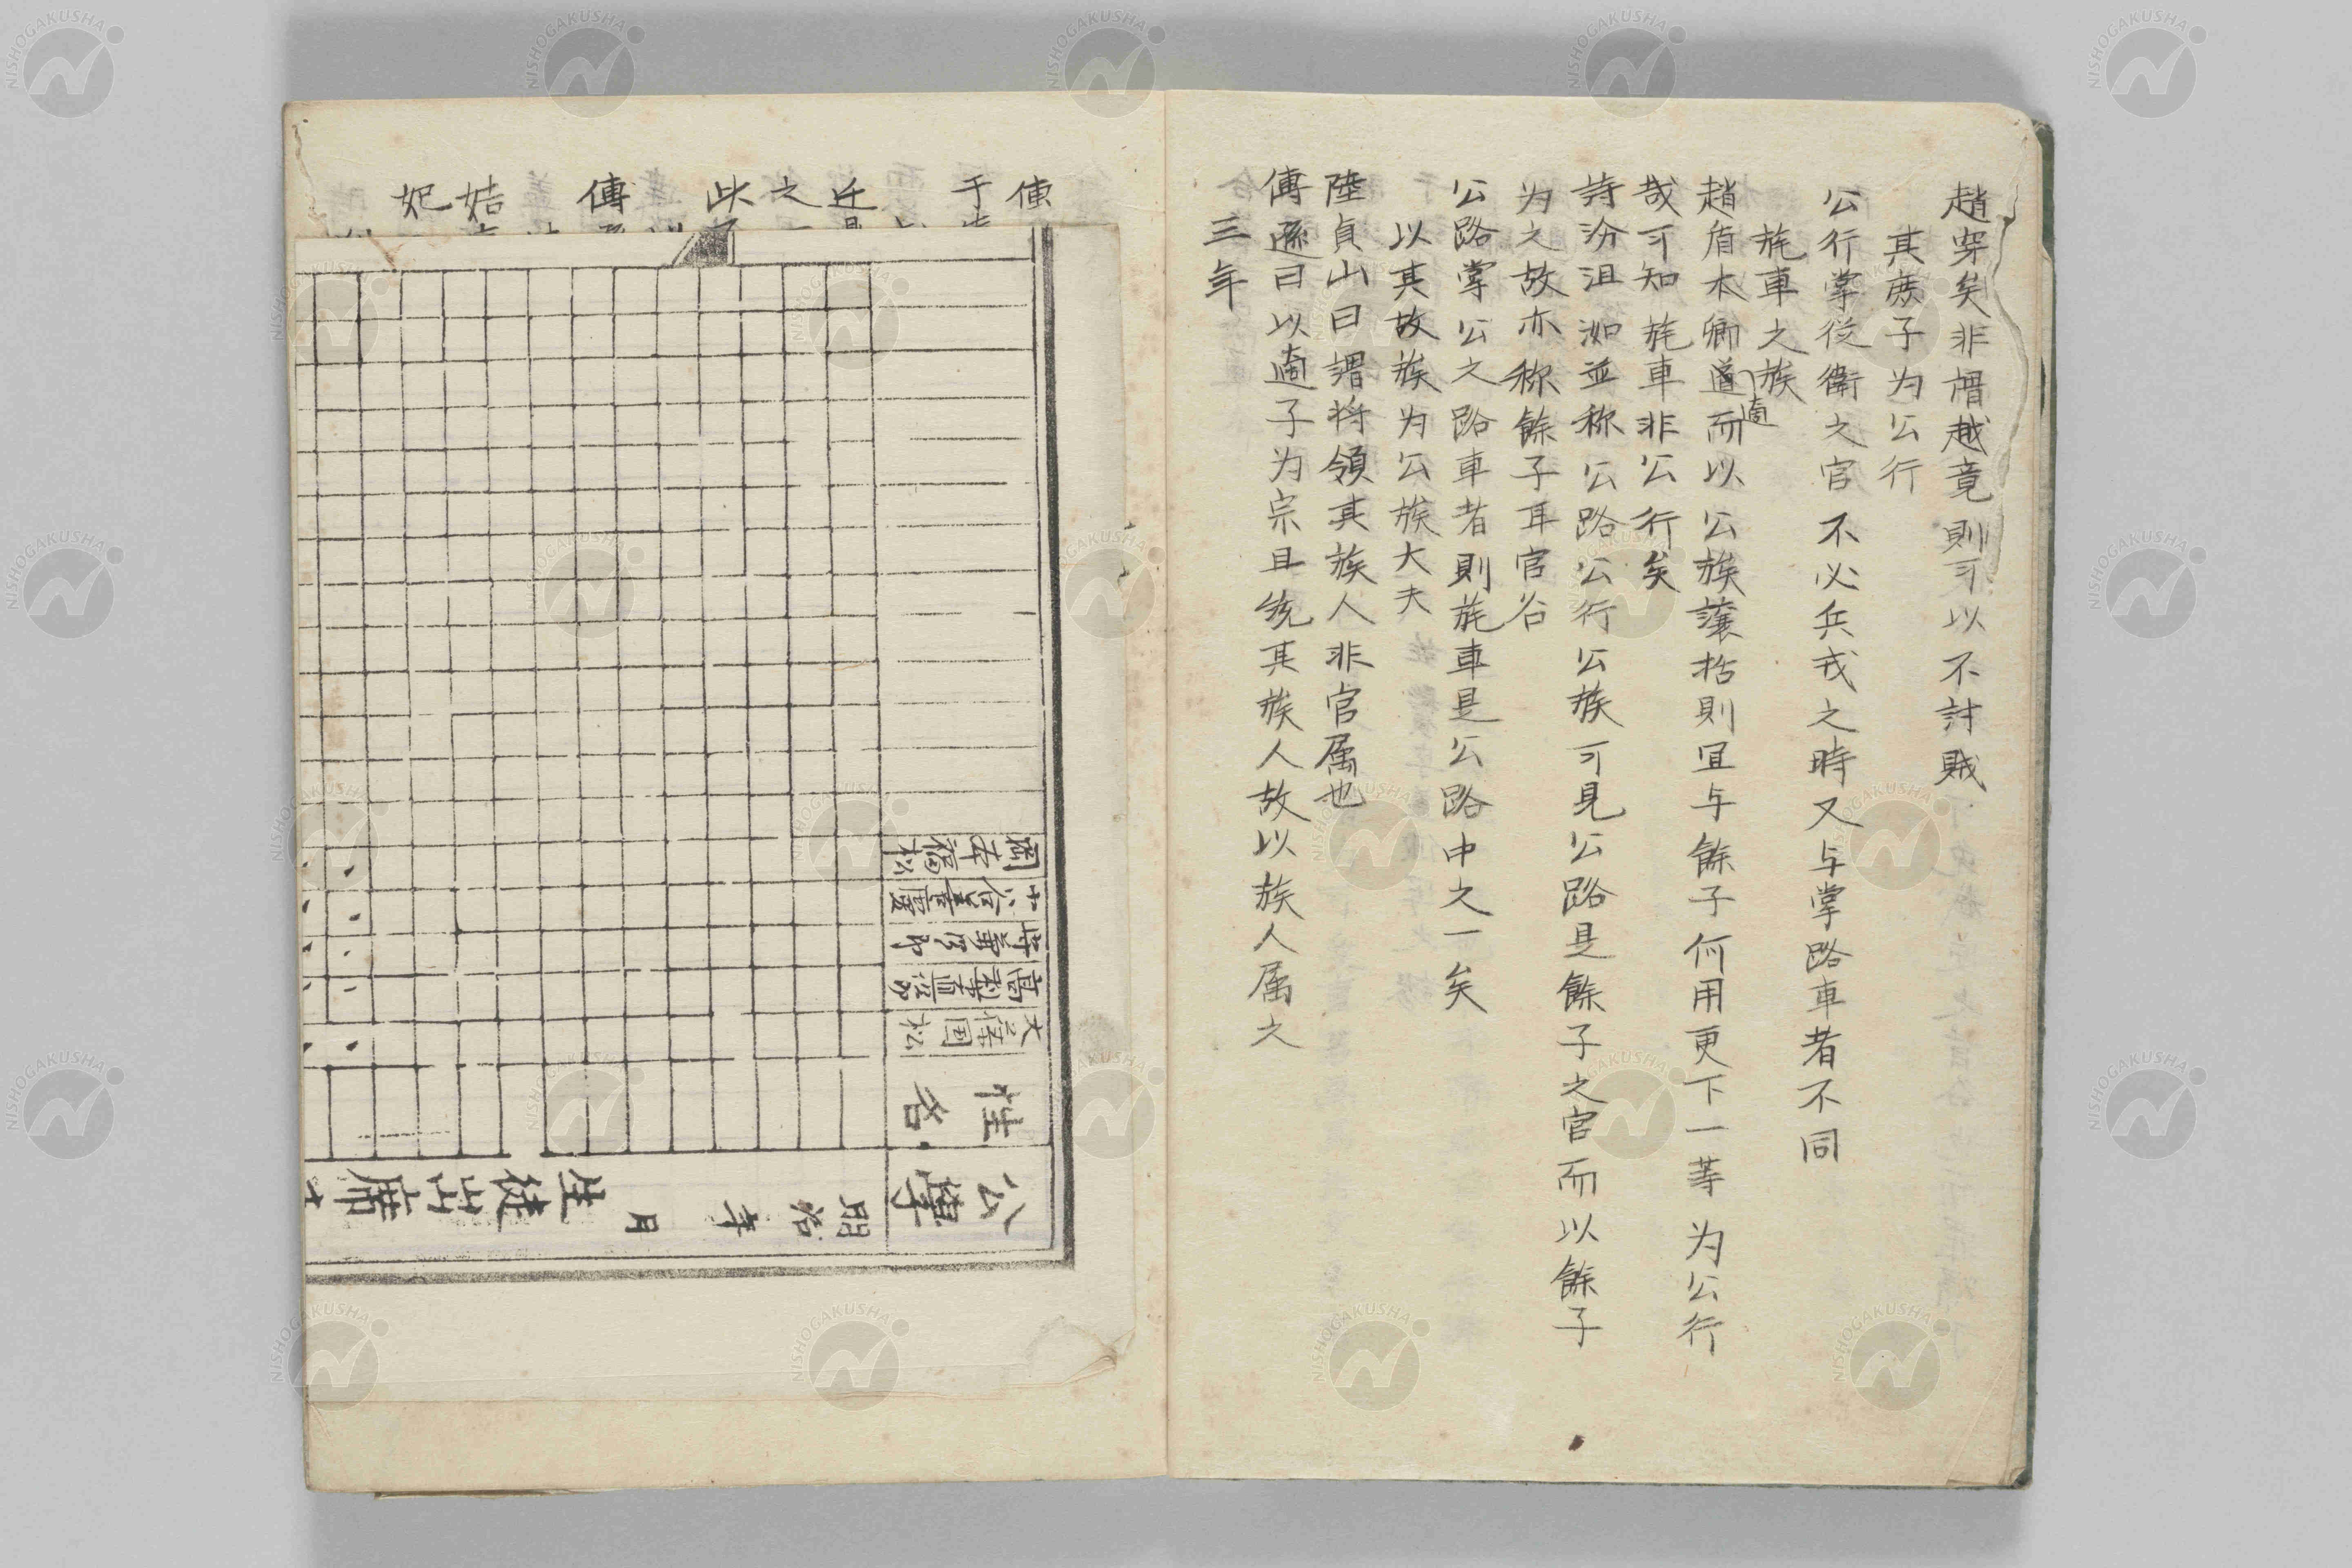 趙穿矣非僭越竟則可以不討賊
其庶子为公行
公行掌従衛之官不必兵戎之時又与掌路車者不同
旄車之族
趙盾本卿適而以公族譲括則宜与餘子何用更下一等为公行
適
哉可知旄車非公行矣
詩汾沮洳並称公路公行公族可見公路是餘子之官而以餘子
为之故亦称餘子耳官名
公路掌公之路車者則旄車是公路中之一矣
以其故族为公族大夫
陸貞山曰謂将領其族人非官属也
傅遜曰以適子为宗且統其族人故以族人属之
三年
于
迁
之
此
傅
姞
妃
公學
明治 年 月
生徒出席
姓名
大 国松
高 直次
小 慶
岡 福松
NISHOGAKUSHA